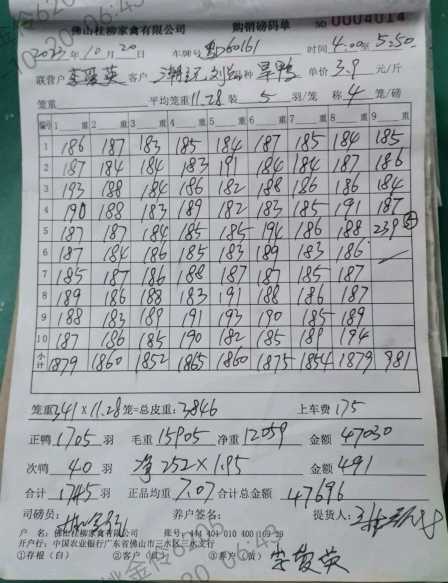 佛山桂柳家禽有限公司 购销磅码单 NO 0004014
2023年10月20日 车牌号 D60161 时间 4:00至5:50
联营户 客户 品种 单价 3.9 元/斤
笼重 平均笼重 11.28 装 5 羽/笼 称 4 笼/磅
编号 1 重 2 重 3 重 4 重 5 重 6 重 7 重 8 重 9 重
1 186 187 183 185 184 187 185 184 185
2 187 184 184 183 191 184 184 187 186
3 193 188 184 186 182 188 186 186 184
4 190 188 183 189 182 183 185 191 187
5 187 187 184 185 185 194 186 188 239
6 187 184 186 185 183 189 183 186
7 185 187 186 188 187 187 185 187
8 189 186 188 183 191 188 186 187
9 188 183 189 191 193 190 185 189
10 187 186 185 190 182 185 189 194
小计 1879 1860 1852 1865 1860 1875 1854 1879 981
笼重 341×11.28 笼=总皮重: 3846 上车费 175
正鸭 1705 羽 毛重 15905 净重 12059 金额 47030
次鸭 40 羽 净 252×1.95 金额 491
合计 1745 羽 正品均重 7.07 合计总金额 47696
司磅员: 养户签名: 提货人:
户 名: 佛山桂柳家禽有限公司 账号:
开户行: 中国农业银行广东省佛山市三水区三水支行
①存根(白) ②客户(红) ③养户(黄)